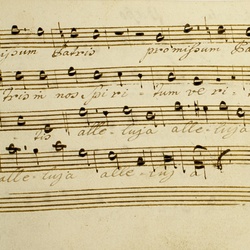 issum Patris promissum Pa
tris in nos spi ri - tum ve ri -
tis alle - luja alle - luja
alle - luja alle - luj a